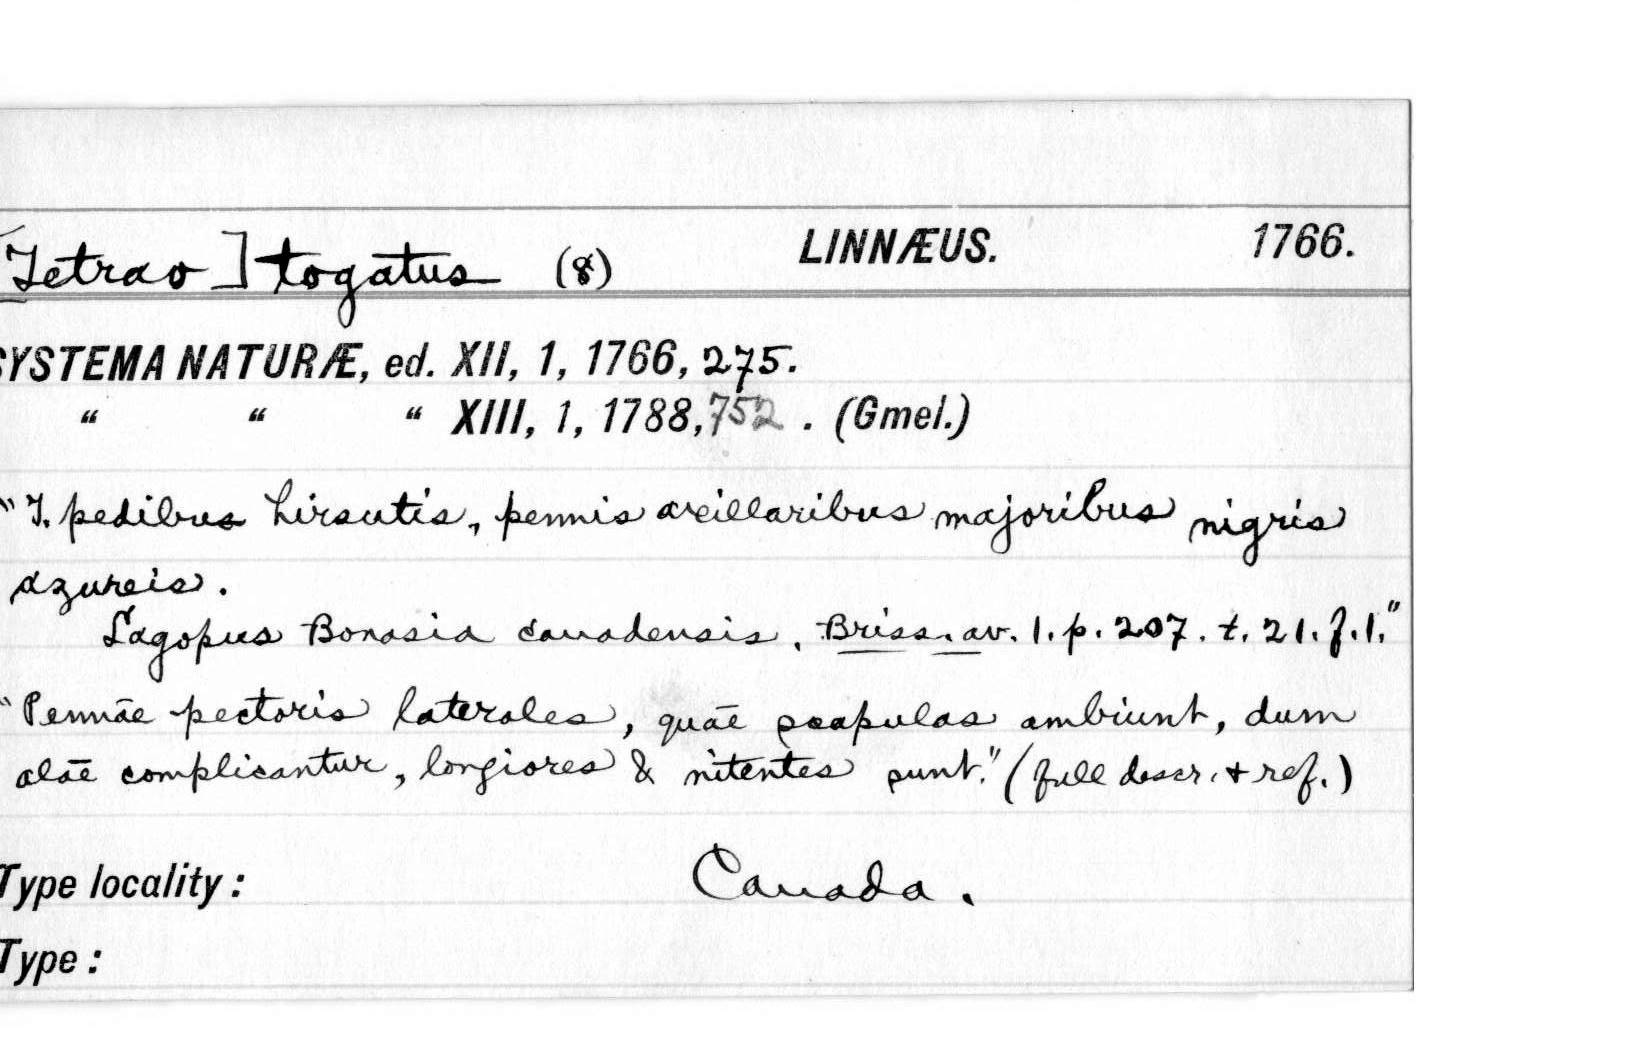 [Tetrao] togatus (8) LINNÆUS. 1766.
SYSTEMA NATURÆ, ed. XII, 1, 1766, 275.
“ “ “ XIII, 1, 1788, 752. (Gmel.)
"T. pedibus hirsutis, pennis axillaribus majoribus nigris
azureis.
Lagopus Bonasia canadensis. Briss. av. 1. p. 207. t. 21. f. 1."
"Pennāe pectoris laterales, quāe scapulas ambiunt, dum
alāe complicantur, longiores & nitentes sunt." (full descr. + ref.)
Type locality: Canada.
Type: